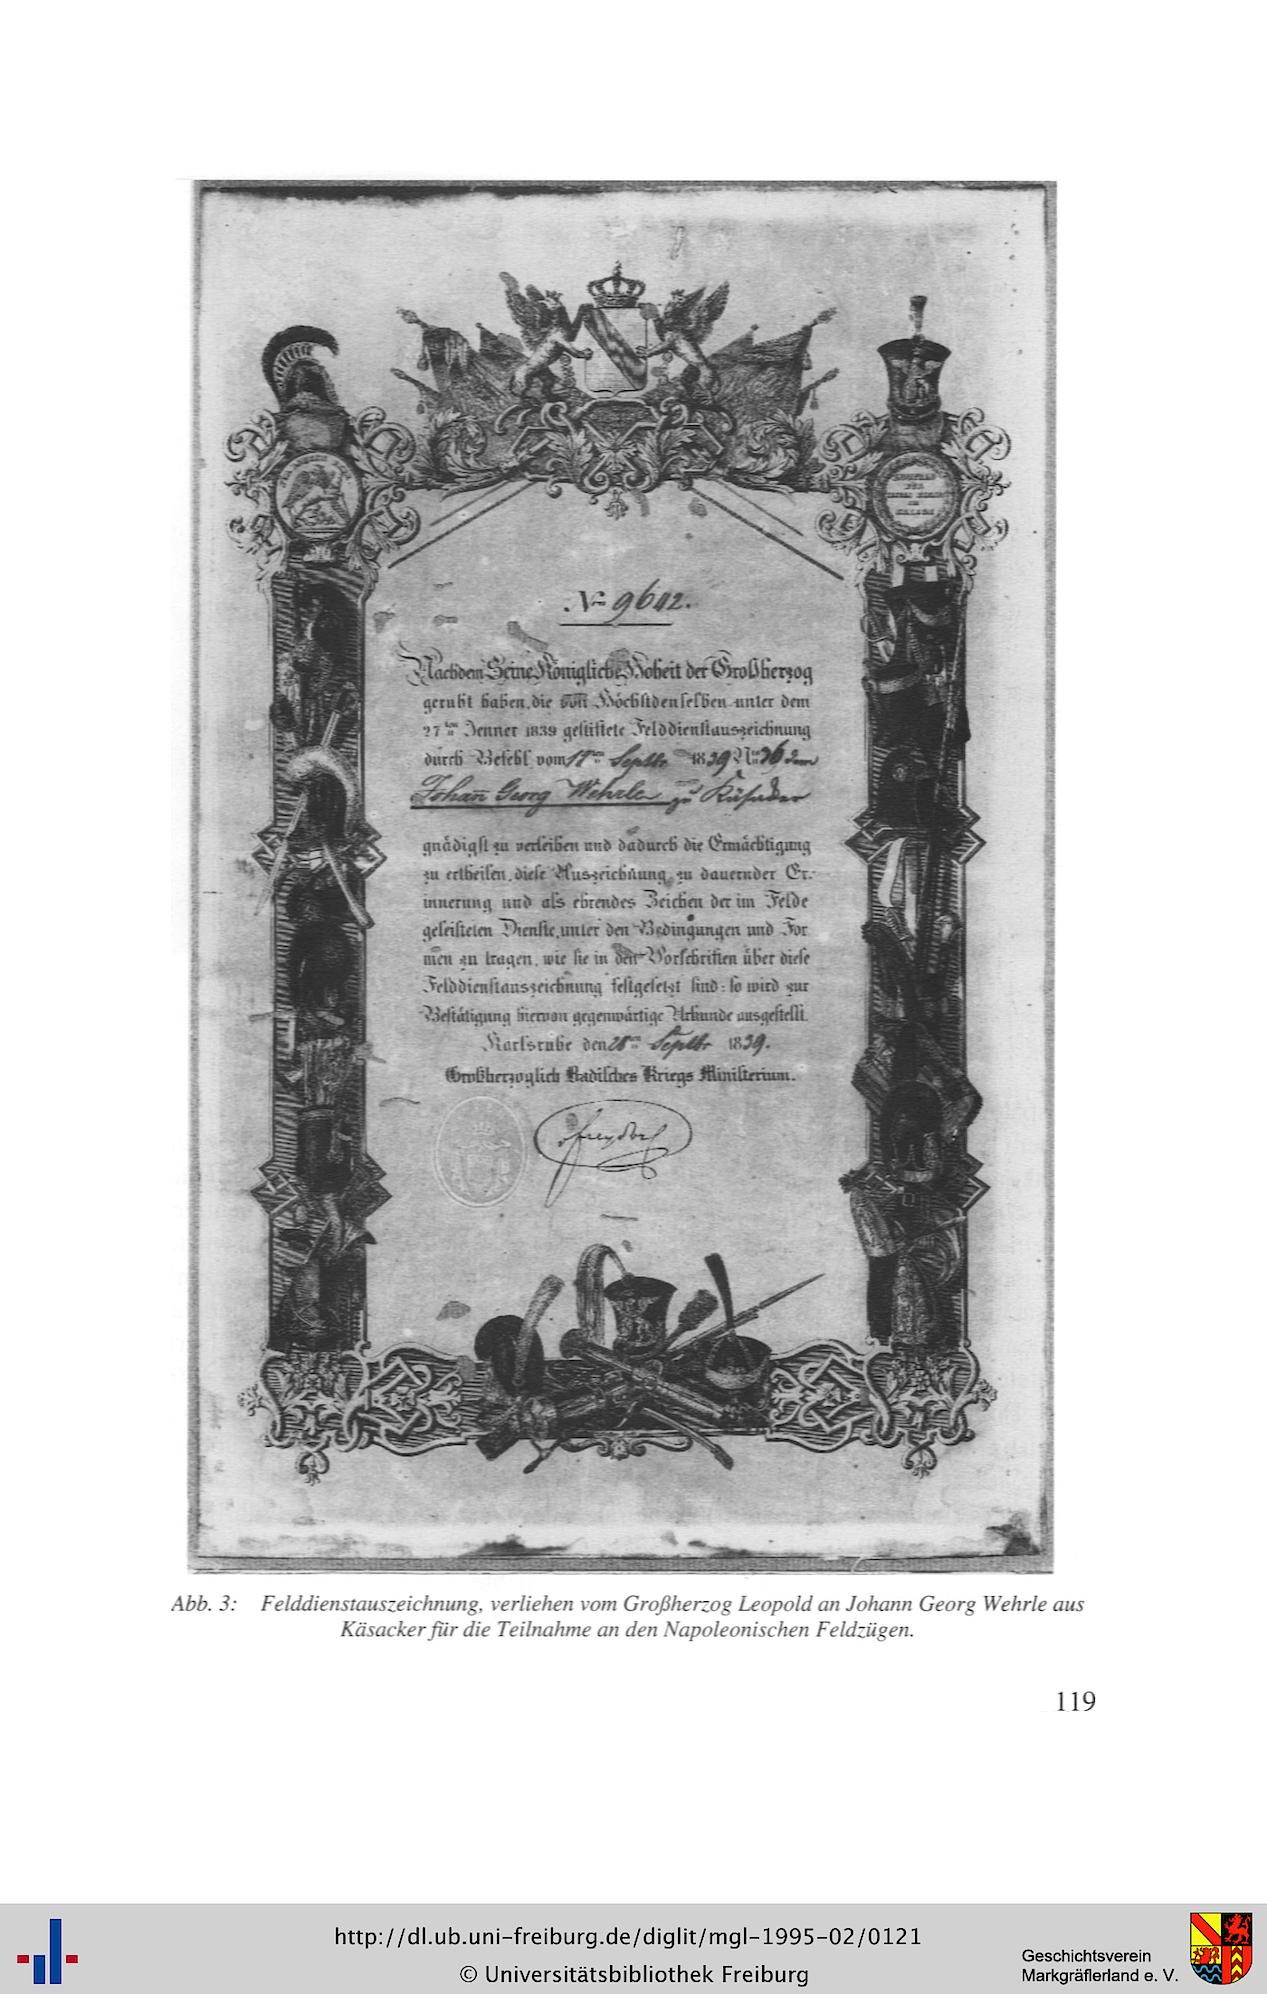 No 9642.
Nachdem Seine Königliche Hoheit der Großherzog
geruht haben, die von Höchstdenselben unter dem
27ten Jenner 1839 gestiftete Felddienstauszeichnung
durch Befehl vom Septbr 1839 No 36 dem
Johann Georg Wehrle zu Käsacker
gnädigst zu verleihen und dadurch die Ermächtigung
zu ertheilen, diese Auszeichnung zu dauernder Er-
innerung und als ehrendes Zeichen der im Felde
geleisteten Dienste, unter den Bedingungen und For
men zu tragen, wie sie in den Vorschriften über diese
Felddienstauszeichnung festgesetzt sind: so wird zur
Bestätigung hiervon gegenwärtige Urkunde ausgestellt.
Karlsruhe den 28ten Septbr 1839.
Großherzoglich Badisches Kriegs Ministerium.
Abb. 3: Felddienstauszeichnung, verliehen vom Großherzog Leopold an Johann Georg Wehrle aus
Käsacker für die Teilnahme an den Napoleonischen Feldzügen.
119
http://dl.ub.uni-freiburg.de/diglit/mgl-1995-02/0121
© Universitätsbibliothek Freiburg
Geschichtsverein
Markgräflerland e. V.